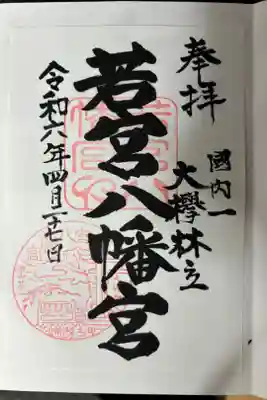 奉拝
國内一
大欅林立
若宮八幡宮
令和六年四月二七日